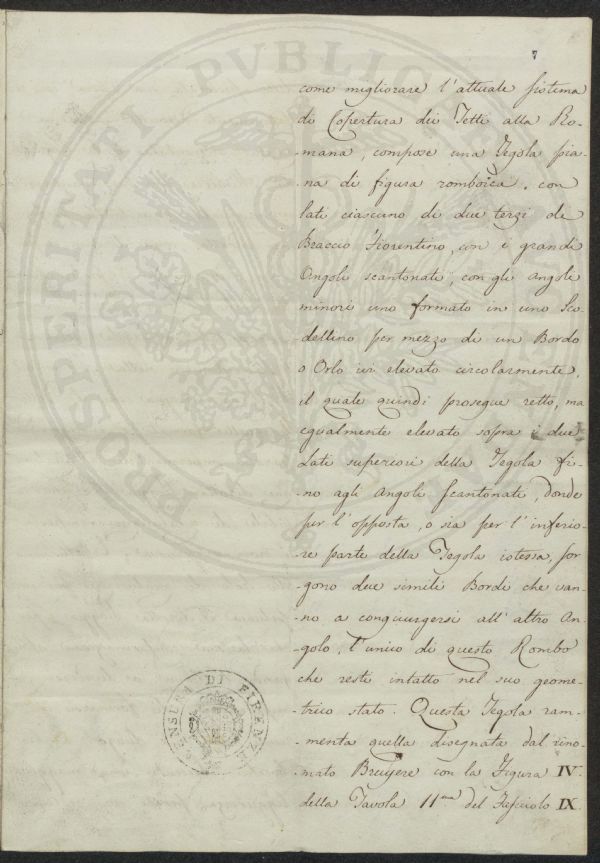 7
come migliorare l'attuale sistema
di Copertura dei Tetti alla Ro-
-mana, compose una Tegola pia-
-na di figura romboica, con
lati ciascuno di due terzi di
Braccio Fiorentino, con i grandi
Angoli scantonati, con gli angoli
minori uno formato in uno Sco-
dellino per mezzo di un Bordo
o Orlo ivi elevato circolarmente,
il quale quindi prosegue retto, ma
egualmente elevato sopra i due
Lati superiori della Tegola fi-
-no agli Angoli scantonati, donde
per l'opposta, o sia per l'inferio-
-re parte della Tegola istessa, sor-
-gono due simili Bordi che van-
-no a congiungersi all'altro An-
-golo, l'unico di questo Rombo
che resti intatto nel suo geome-
-trico stato. Questa Tegola ram-
-menta quella disegnata dal rino-
-mato Bruyere con la Figura IV.
della Tavola 11ma del Fascicolo IX.
CENSURA DI FIRENZE
PROSPERITATI PVBLICAE